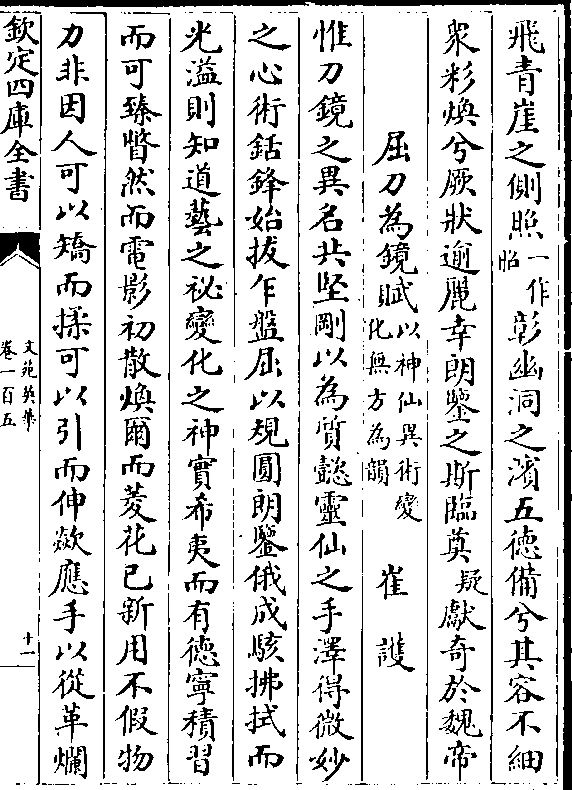 飛青崖之側照一作昭彰幽洞之濱五徳備兮其容不細
衆彩煥兮厥狀逾麗幸朗鑒之斯臨奠疑獻奇於魏帝
屈刀為鏡賦以神仙異術變化無方為韻　崔護
惟刀鏡之異名共堅剛以為質懿靈仙之手澤得微妙
之心術銛鋒始拔乍盤屈以規圓朗鑒俄成駭拂拭而
光溢則知道藝之祕變化之神實希夷而有徳寧積習
而可臻瞥然而電影初散煥爾而菱花已新用不假物
力非因人可以矯而揉可以引而伸歘應手以從革爛
欽定四庫全書
文苑英華
卷一百五
十一